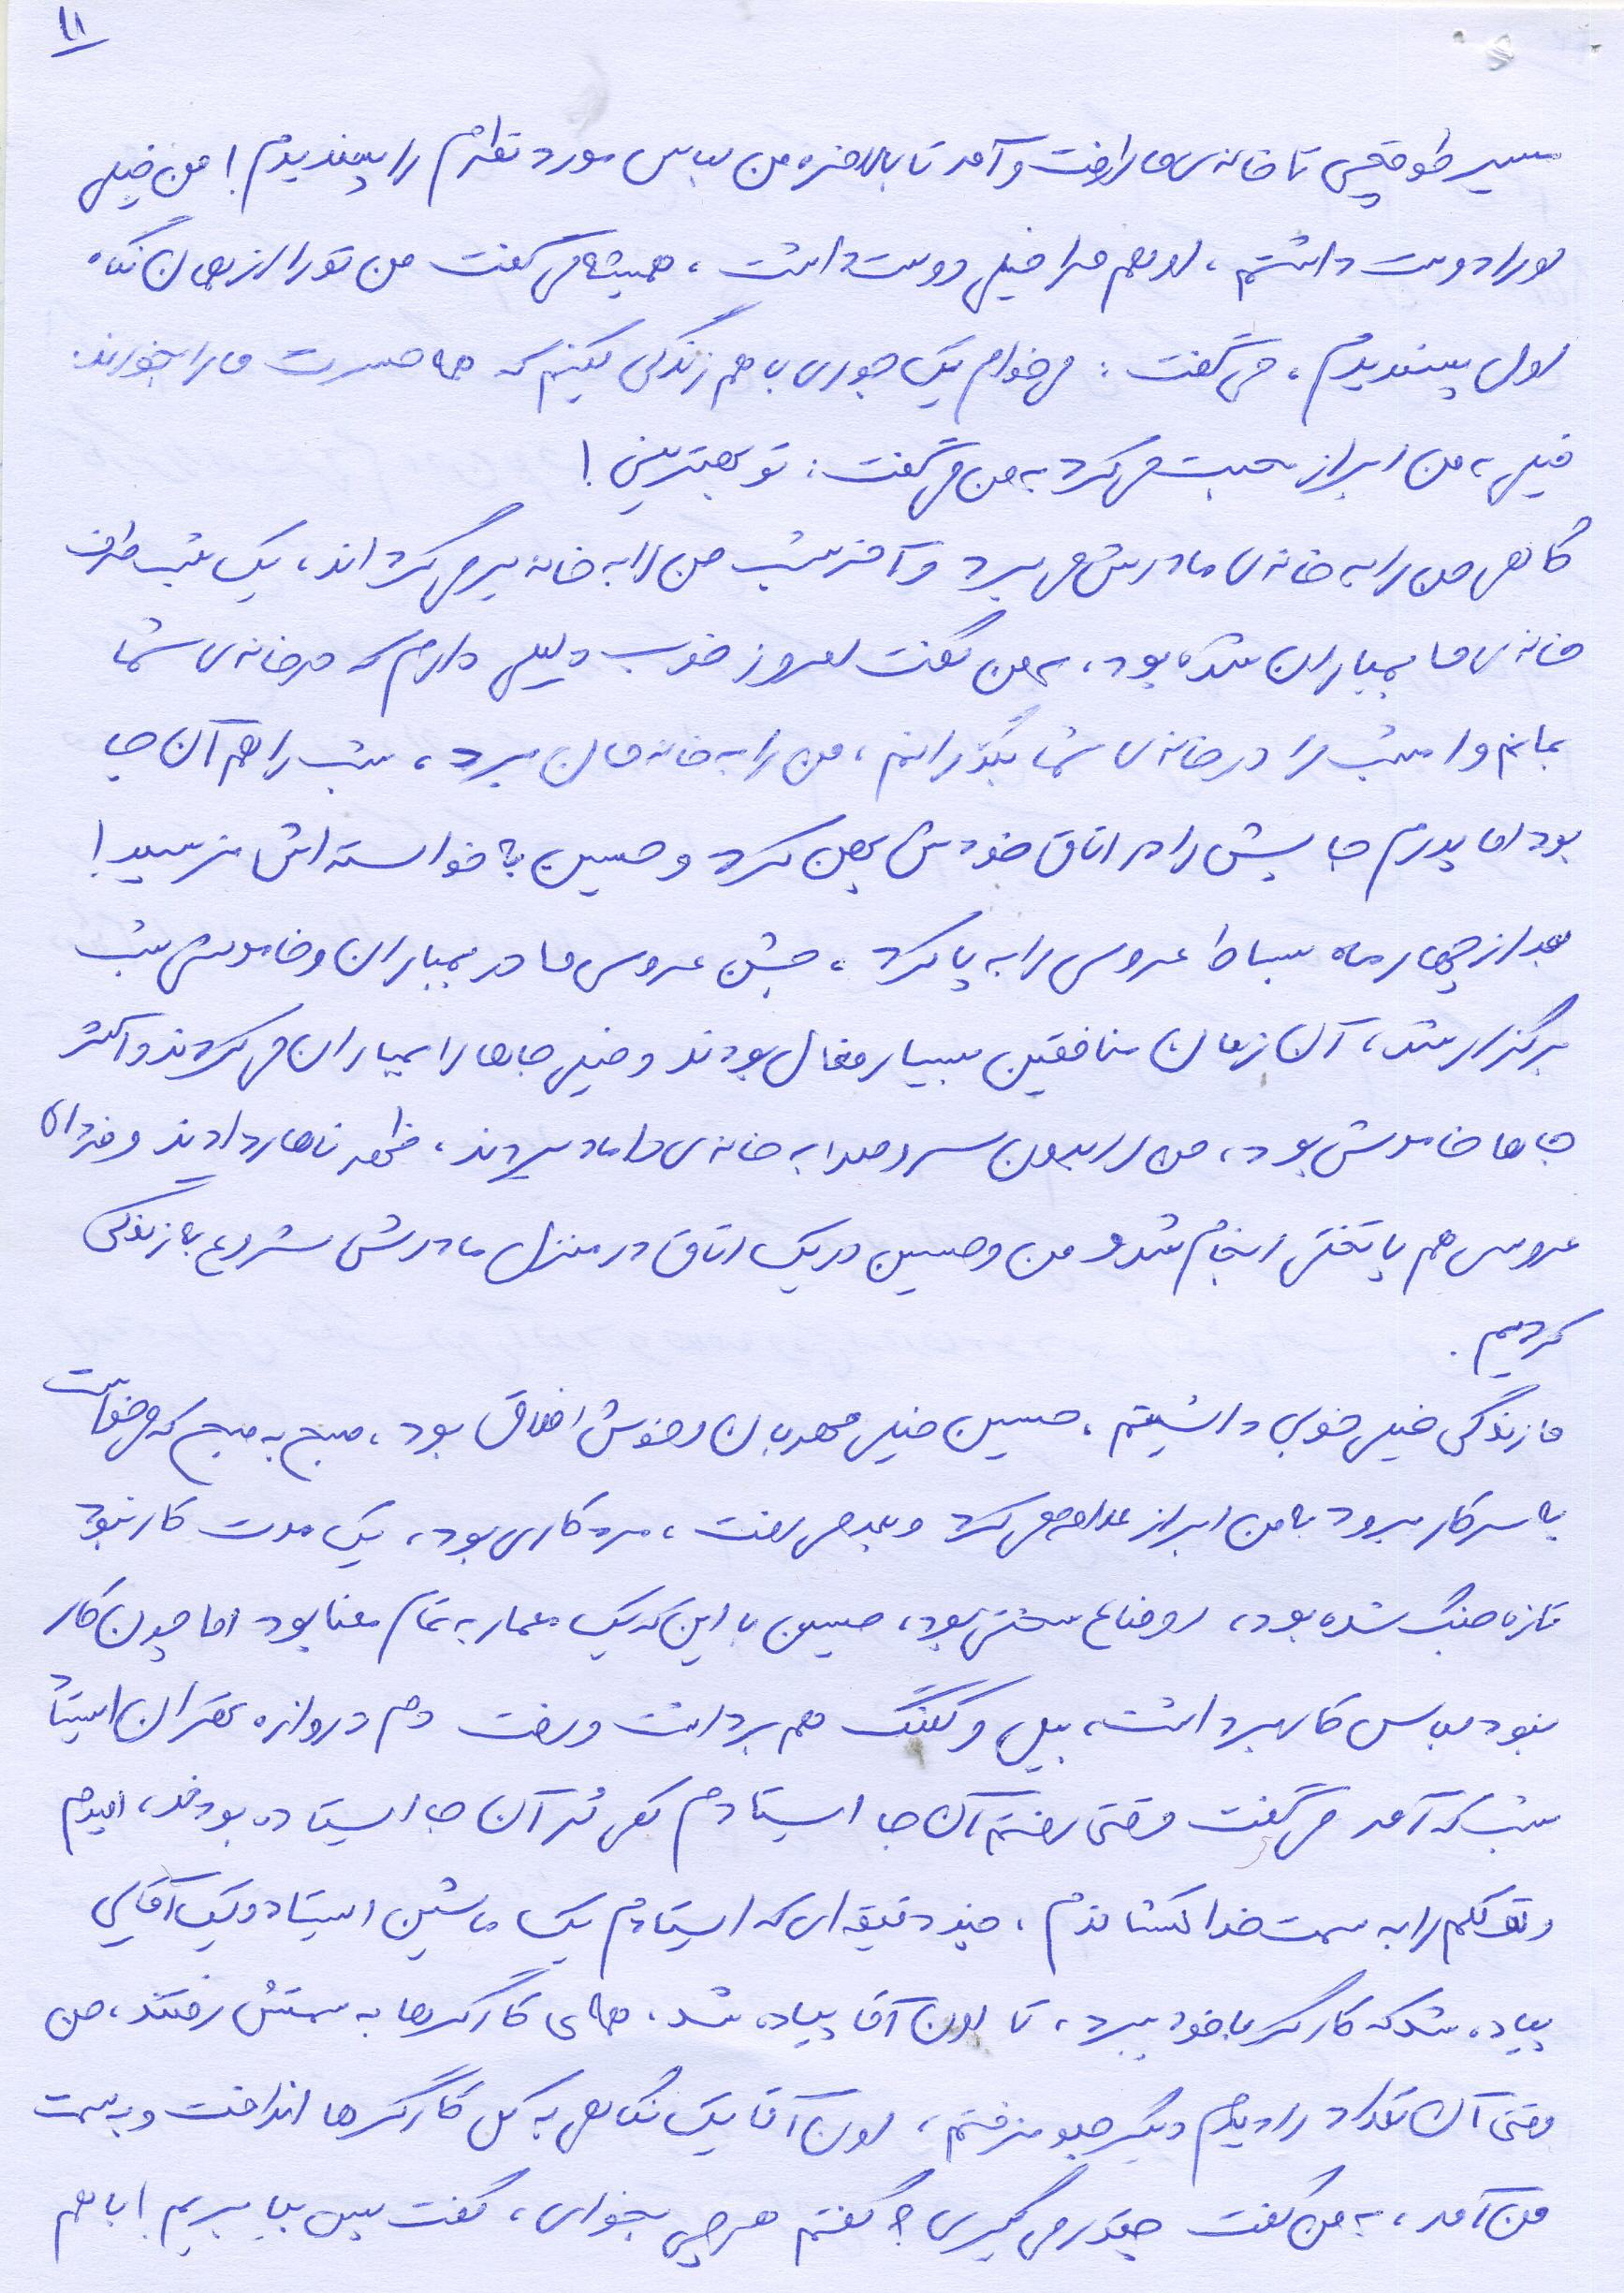 ۱۱
مسیر طوقچی تا خانه‌ی ما را رفت و آمد تا بالاخره من لباس مورد نظرم را پسندیدم! من خیلی
او را دوست داشتم، او هم مرا خیلی دوست داشت، همیشه می گفت من تو را از همان نگاه
اول پسندیدم، می گفت: می خوام یک جوری با هم زندگی کنیم که همه حسرت ما را بخورند.
خیلی به من ابراز محبت می کرد به من می گفت: تو بهترینی!
گاهی من را به خانه‌ی مادرش می برد و آخر شب من را به خانه برمی گرداند، یک شب طرف
خانه‌ی ما بمباران شده بود، به من گفت امروز خوب دلیلی دارم که در خانه‌ی شما
بمانم و امشب را در خانه‌ی شما بگذرانم، من را به خانه مان برد، شب را هم آن جا
بود اما پدرم جایش را در اتاق خودش پهن کرد و حسین به خواسته اش نرسید!
بعد از چهار ماه بساط عروسی را به پا کرد، جشن عروسی ما در بمباران و خاموشی شب
برگزار شد، آن زمان منافقین بسیار فعال بودند و خیلی جاها را بمباران می کردند و اکثر
جاها خاموش بود، من را بدون سر و صدا به خانه‌ی داماد بردند، ظهر ناهار دادند و فردای
عروسی هم پاتختی انجام شد و من و حسین در یک اتاق در منزل مادرش شروع به زندگی
کردیم.
ما زندگی خیلی خوبی داشتیم، حسین خیلی مهربان و خوش اخلاق بود، صبح به صبح که می خواست
به سر کار برود به من ابراز علاقه می کرد و بعد می رفت، مرد کاری بود، یک مدت کار نبود
تازه جنگ شده بود، اوضاع سختی بود، حسین با این که یک معمار به تمام معنا بود اما چون کار
نبود لباس کار برداشت، بیل و کلنگ هم برداشت و رفت دم دروازه تهران ایستاد
شب که آمد می گفت وقتی رفتم آن جا ایستادم کلی نفر آن جا ایستاده بودند، امیدم
و توکلم را به سمت خدا کشاندم، چند دقیقه ای که ایستادم یک ماشین ایستاد و یک آقایی
پیاده شد که کارگر با خود ببرد، تا اون آقا پیاده شد، همه‌ی کارگرها به سمتش رفتند، من
وقتی آن تعداد را دیدم دیگر جلو نرفتم، اون آقا یک نگاهی به کل کارگرها انداخت و به سمت
من آمد، به من گفت چقدر می گیری؟ گفتم هر چی بخوای، گفت پس بیا بریم! با هم